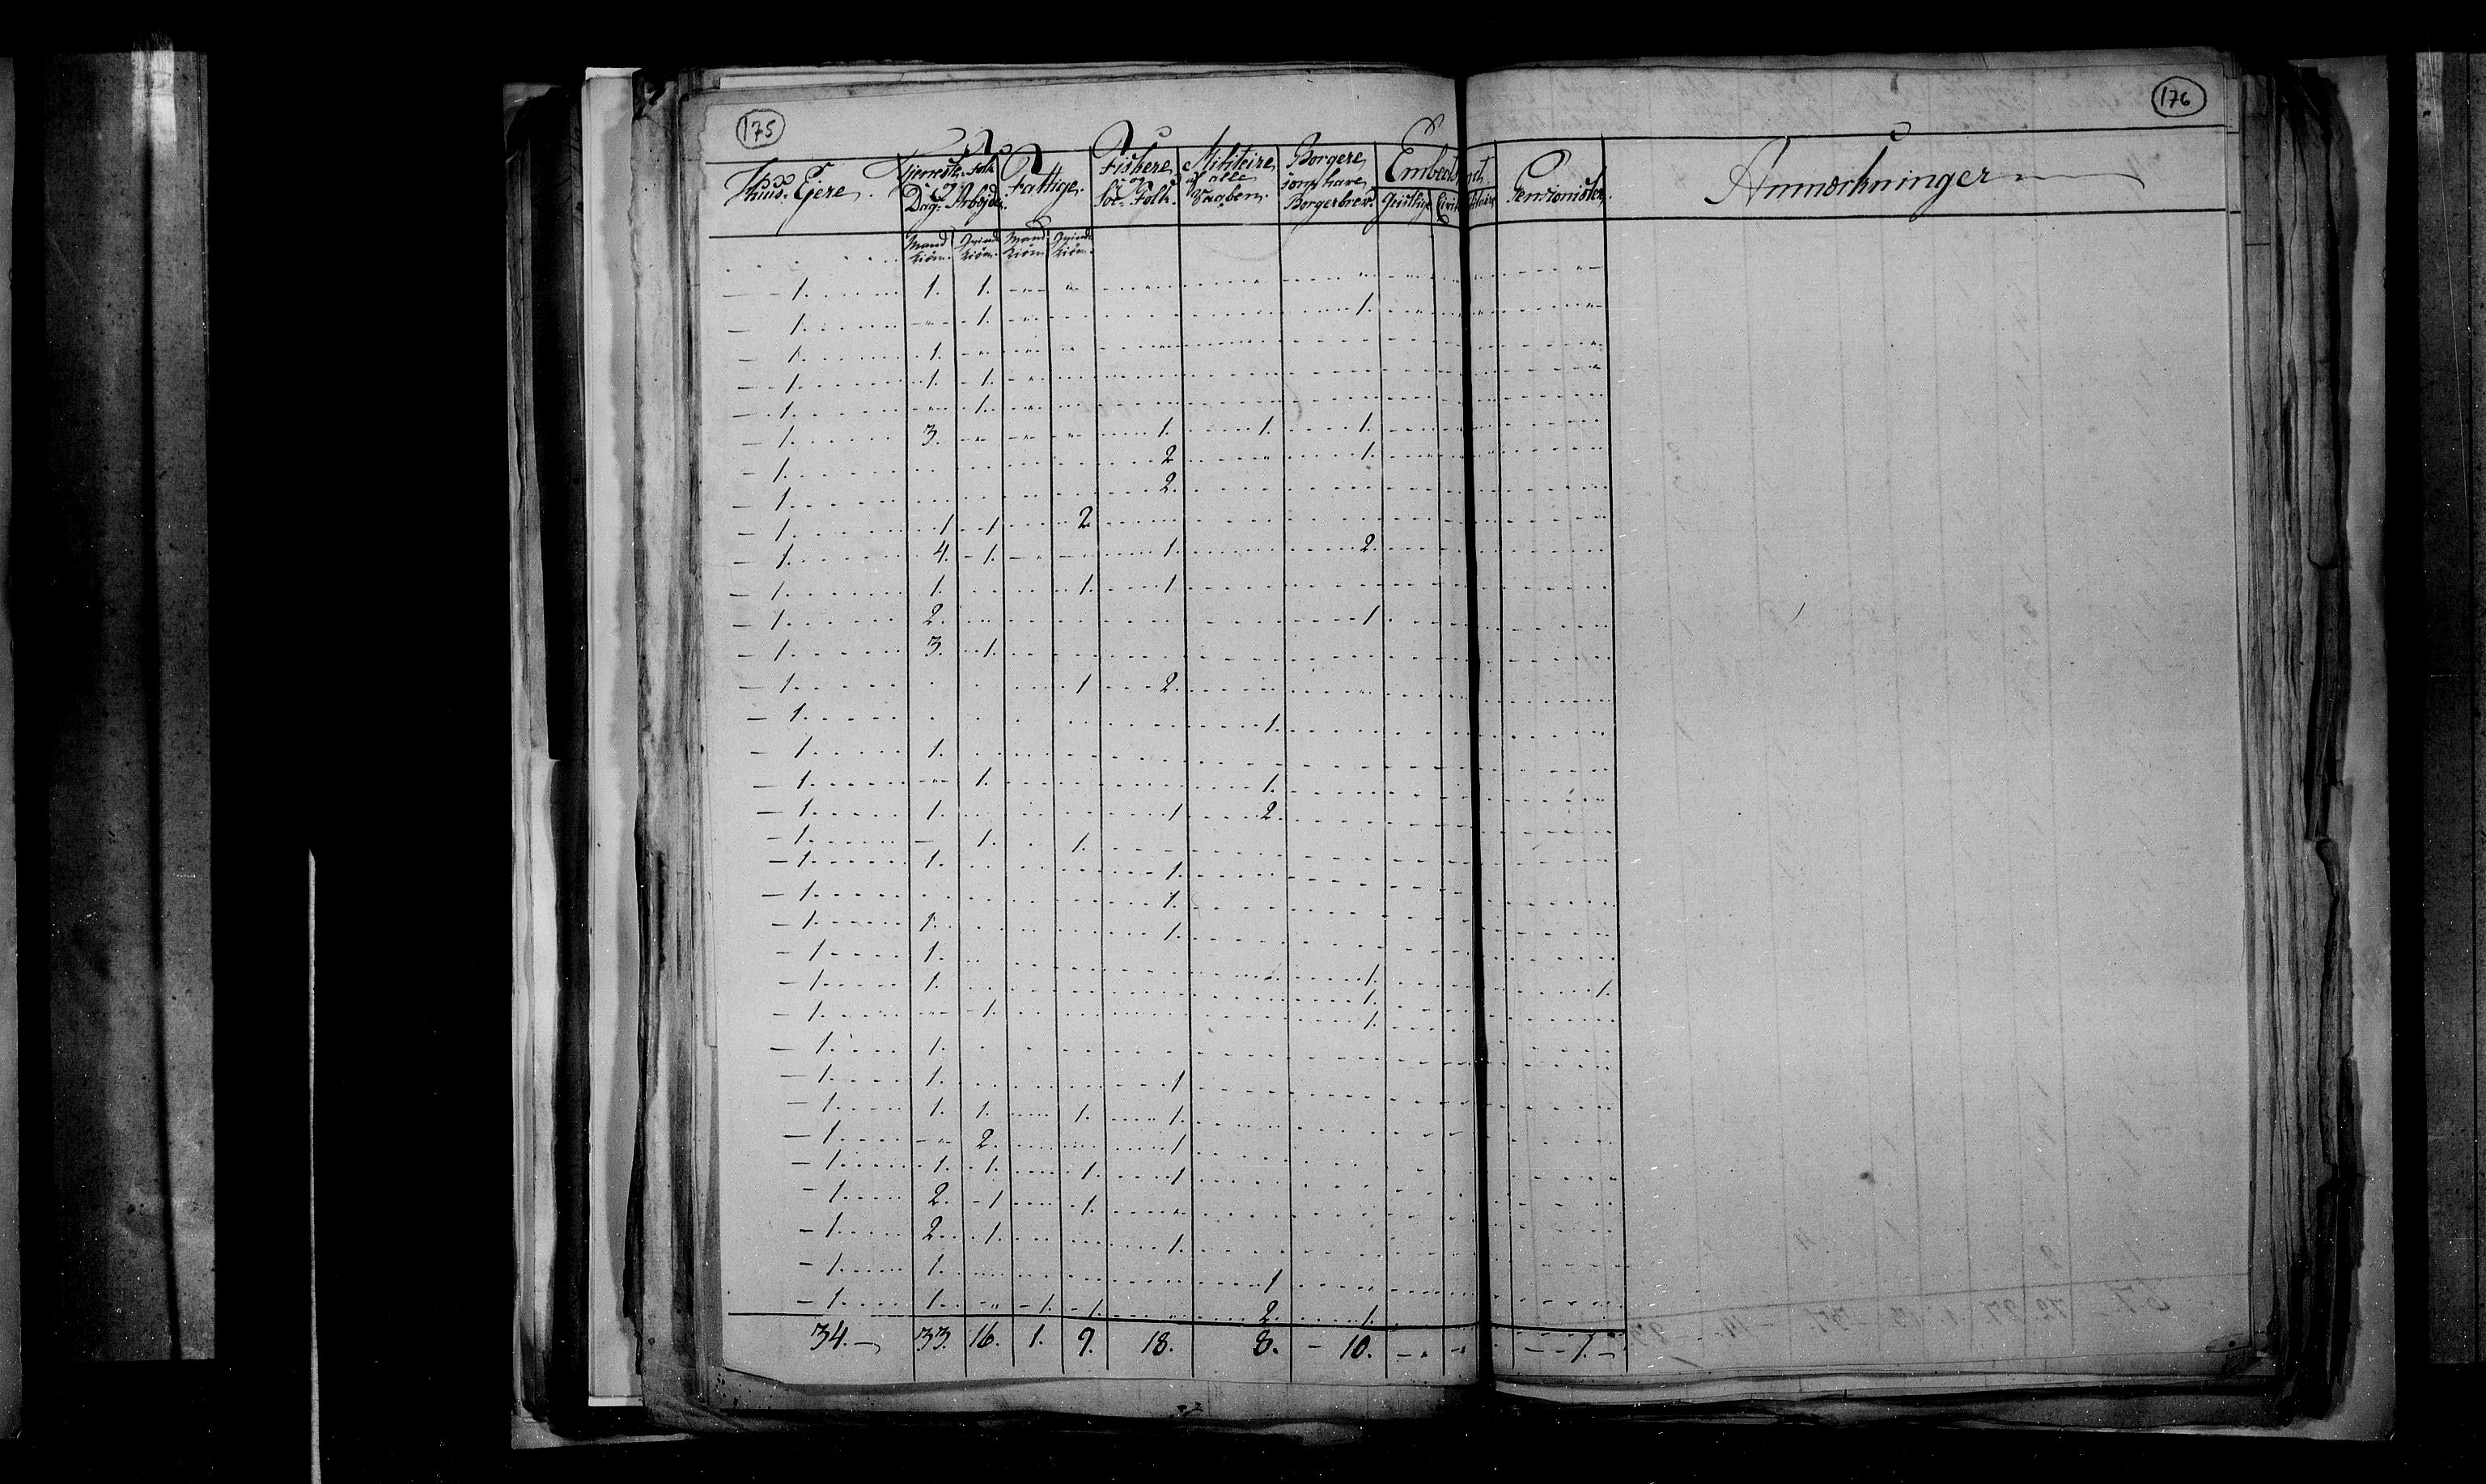 175
176
Huus Ejere. Tjeneste-Folk og Dag-Arbejdere. Fattige. Fiskere og Söe-Folk. Militaire af alle Vaaben. Borgere som have Borgerbrev. Embed Geistlige Civile Pensionister. Anmærkninger
Mand Kiön. Qvinde Kiön. Mand Kiön. Qvinde Kiön.
1. 1. 1.
1. 1. 1.
1. 1.
1. 1. 1.
1. 1.
1. 3. 1. 1. 1.
1. 2 1.
1. 2.
1. 1 1 2
1. 4. 1. 1. 2.
1. 1. 1. 1
1. 2. 1
1. 3. 1.
1. 1 2.
1. 1.
1. 1.
1. 1. 1.
1. 1. 1 2.
1. 1. 1.
1. 1. 1.
1. 1.
1. 1. 1.
1. 1. 1.
1. 1. 1. 1.
1. 1. 1.
1. 1.
1. 1. 1
1. 1. 1. 1. 1.
1. 2. 1
1. 1. 1. 1. 1
1. 2. 1 1.
1. 2. 1. 1.
1. 1. 1
1. 1. 1. 1. 2. 1.
34. 33. 16. 1. 9. 18. 8. 10. 1.